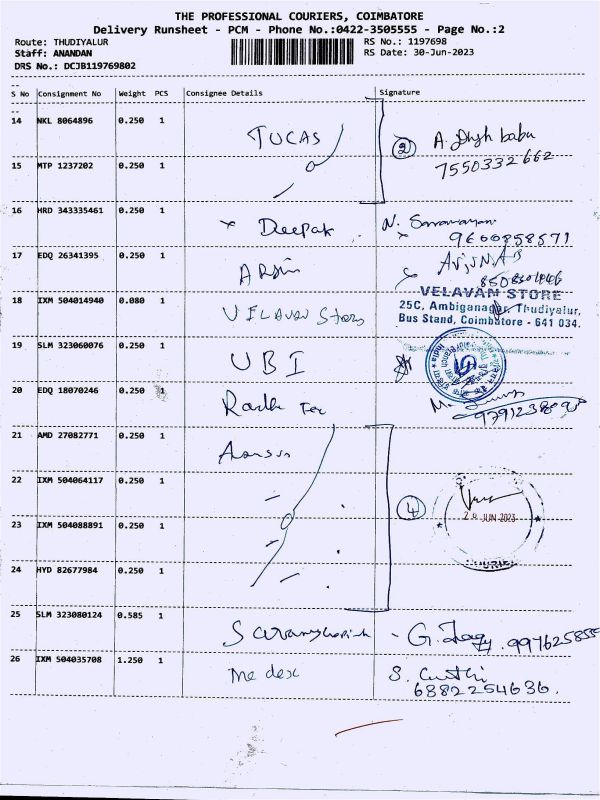 THE PROFESSIONAL COURIERS, COIMBATORE
Delivery Runsheet - PCM - Phone No.:0422-3505555 - Page No.:2
Route: THUDIYALUR
RS No.: 1197698
Staff: ANANDAN
RS Date: 30-Jun-2023
DRS No.: DCJB119769802
S No Consignment No Weight PCS Consignee Details Signature
14 NKL 8064896 0.250 1
TUCAS 2 A. babu
7550332662
15 MTP 1237202 0.250 1
16 HRD 343335461 0.250 1
x Deepak N.
9600858571
17 EDQ 26341395 0.250 1
18 IXM 504014940 0.080 1
VELAVAN Stores
VELAVAM STORE
25C, Ambiganagar, Thudiyalur,
Bus Stand, Coimbatore - 641 034.
19 SLM 323060076 0.250 1
UBI
20 EDQ 18070246 0.250 1
21 AMD 27082771 0.250 1
22 IXM 504064117 0.250 1
4
23 IXM 504088891 0.250 1
28 JUN 2023
24 HYD 82677984 0.250 1
25 SLM 323080124 0.585 1
G.
26 IXM 504035708 1.250 1
Medex S.
6382254636.